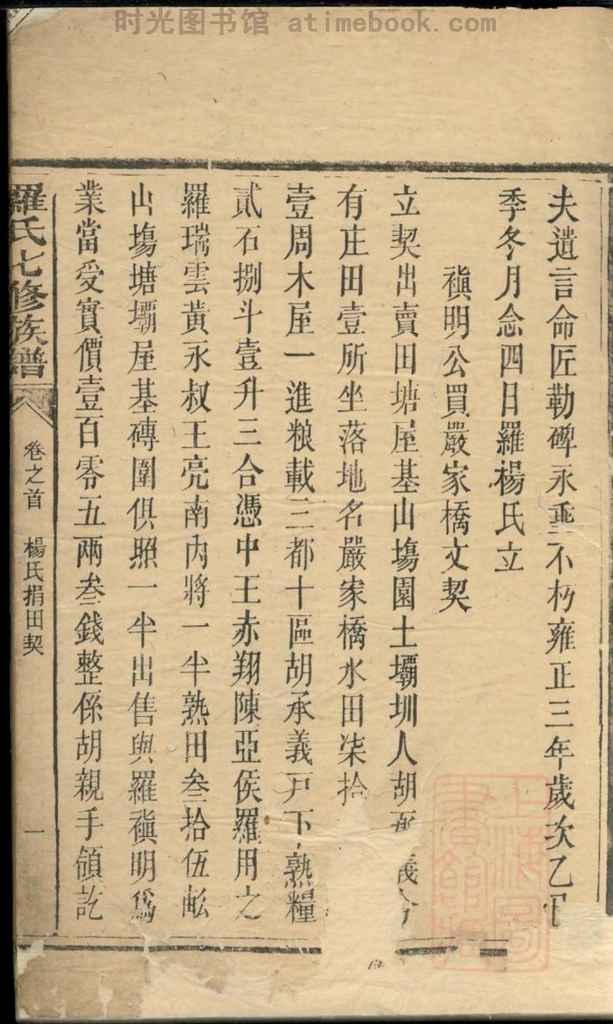 时光图书馆 atimebook.com
夫遺言命匠勒碑永垂不朽雍正三年歲次乙
季冬月念四日羅楊氏立
禛明公買嚴家橋文契
立契出賣田塘屋基山塲園土壩圳人胡承義今
有庄田壹所坐落地名嚴家橋水田柒拾
壹周木屋一進粮載三都十區胡承義戸下熟糧
貳石捌斗壹升三合憑中王赤翔陳亞侯羅用之
羅瑞雲黃永叔王亮南內將一半熟田叁拾伍畝
山塲塘壩屋基磚圍俱照一半出售與羅禛明爲
業當受實價壹百零五兩叁錢整係胡親手領訖
羅氏七修族譜
卷之首 楊氏捐田契 一